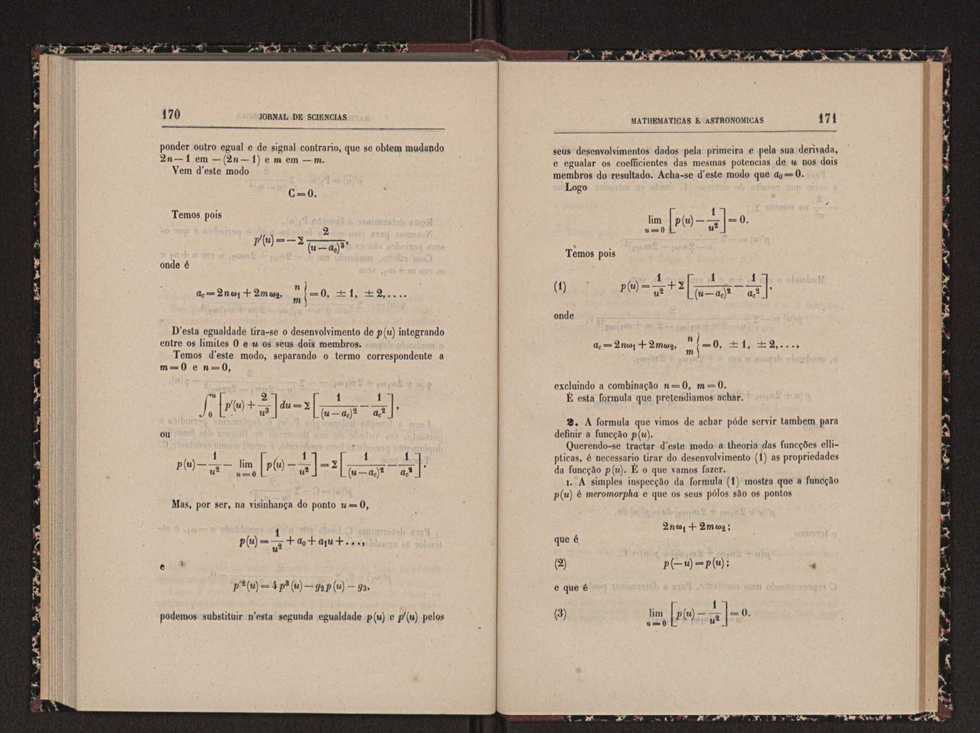 170 JORNAL DE SCIENCIAS
ponder outro egual e de signal contrario, que se obtem mudando
2n — 1 em — (2n — 1) e m em — m.
Vem d'este modo
C = 0.
Temos pois
p'(u) = — Σ 2/(u — a_c)³,
onde é
a_c = 2nω₁ + 2mω₂, n m } = 0, ± 1, ± 2,....
D'esta egualdade tira-se o desenvolvimento de p(u) integrando
entre os limites 0 e u os seus dois membros.
Temos d'este modo, separando o termo correspondente a
m = 0 e n = 0,
∫₀ᵘ [p'(u) + 2/u³] du = Σ [1/(u — a_c)² — 1/a_c²],
ou
p(u) — 1/u² — lim u=0 [p(u) — 1/u²] = Σ [1/(u — a_c)² — 1/a_c²].
Mas, por ser, na visinhança do ponto u = 0,
p(u) = 1/u² + a₀ + a₁u + ...,
e
p'²(u) = 4p³(u) — g₂p(u) — g₃,
podemos substituir n'esta segunda egualdade p(u) e p'(u) pelos
MATHEMATICAS E ASTRONOMICAS 171
seus desenvolvimentos dados pela primeira e pela sua derivada,
e egualar os coefficientes das mesmas potencias de u nos dois
membros do resultado. Acha-se d'este modo que a₀ = 0.
Logo
lim u=0 [p(u) — 1/u²] = 0.
Temos pois
(1) p(u) = 1/u² + Σ [1/(u — a_c)² — 1/a_c²],
onde
a_c = 2nω₁ + 2mω₂, n m } = 0, ± 1, ± 2,...,
excluindo a combinação n = 0, m = 0.
É esta formula que pretendiamos achar.
2. A formula que vimos de achar póde servir tambem para
definir a funcção p(u).
Querendo-se tractar d'este modo a theoria das funcções elli-
pticas, é necessario tirar do desenvolvimento (1) as propriedades
da funcção p(u). É o que vamos fazer.
I. A simples inspecção da formula (1) mostra que a funcção
p(u) é meromorpha e que os seus pólos são os pontos
2nω₁ + 2mω₂;
que é
(2) p(—u) = p(u);
e que é
(3) lim u=0 [p(u) — 1/u²] = 0.